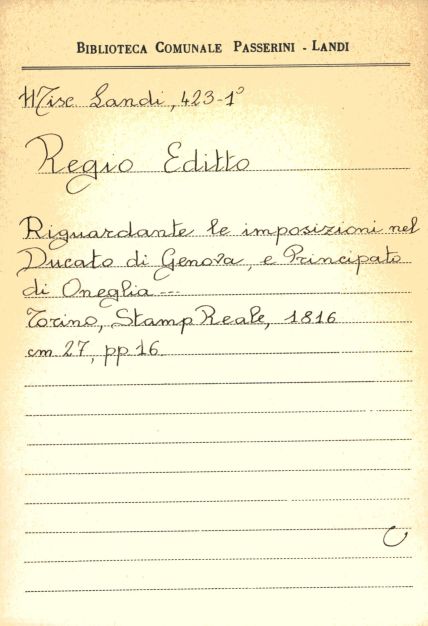 BIBLIOTECA COMUNALE PASSERINI - LANDI
Misc Landi, 423-1°
Regio Editto
Riguardante le imposizioni nel
Ducato di Genova, e Principato
di Oneglia ---
Torino, Stamp Reale, 1816
cm 27, pp 16